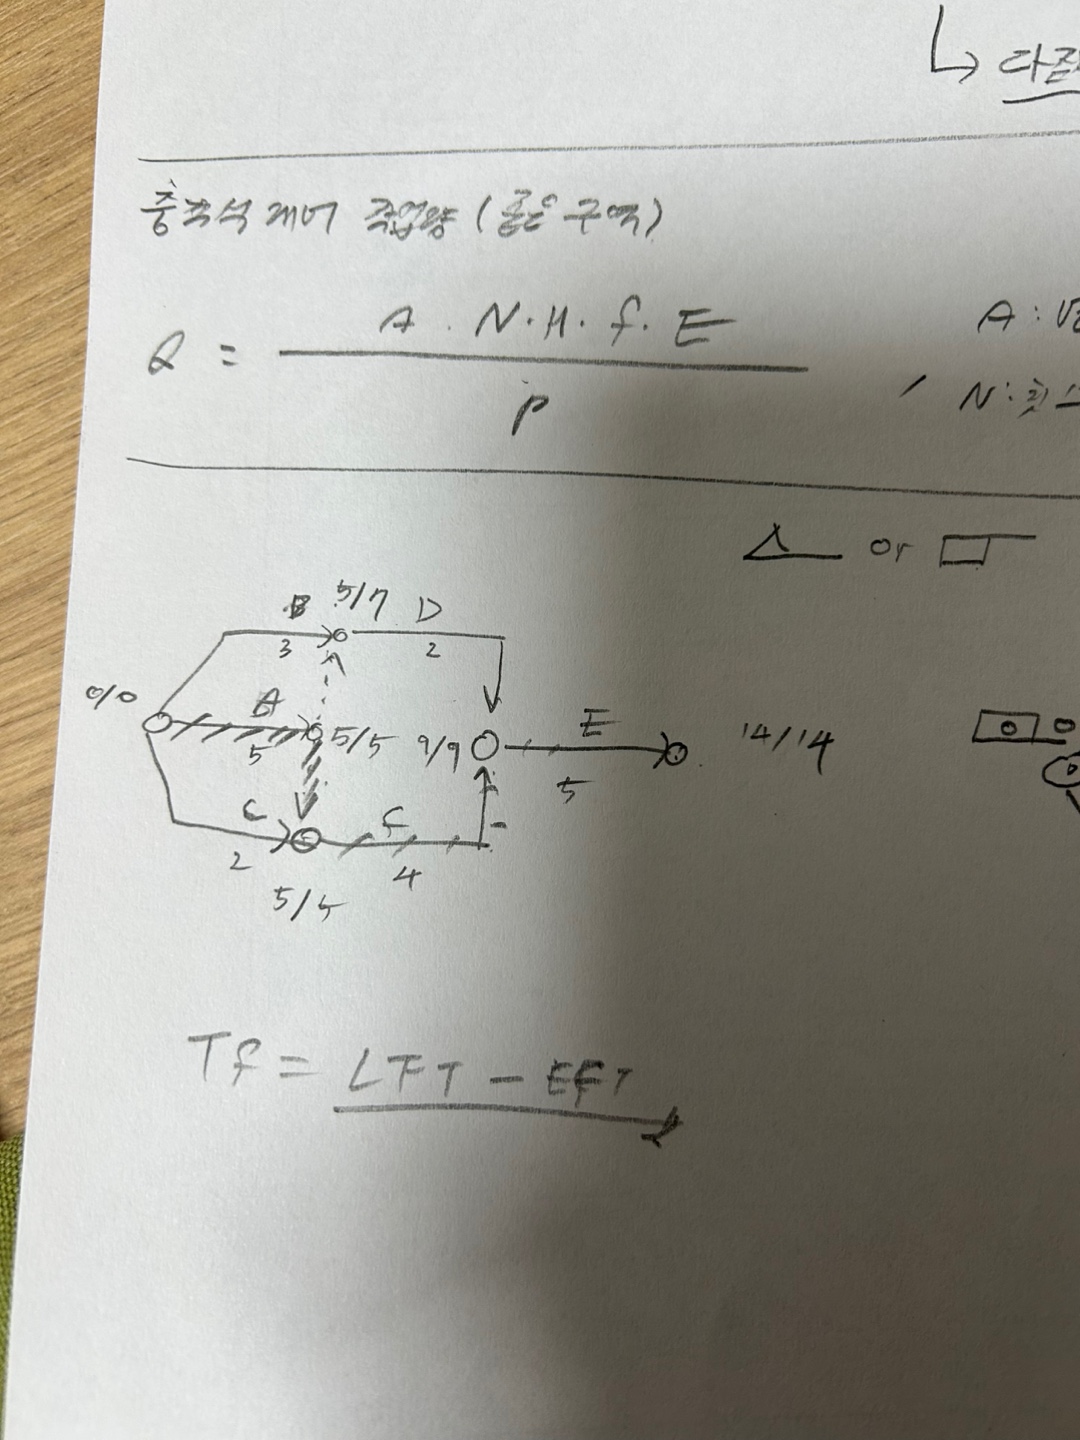 ↳ 다짐
충격식 래머 작업량 (좁은 구역)
Q = A · N · H · f · E / P
A :
N : 횟수
or
B 5/7 D
3 2
0/0 A 5/5 9/9 E 14/14
5 5
C F
2 4
5/5
Tf = LFT - EFT